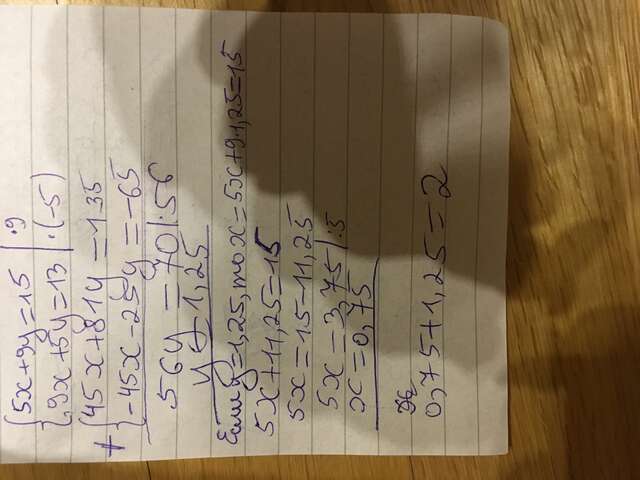 {5x+9y=15 | ·9
{9x+5y=13 | ·(-5)
+ {45x+81y=135
{-45x-25y=-65
56y=70|:56
y=1,25
Если y=1,25, то x=5x+9·1,25=15
5x+11,25=15
5x=15-11,25
5x=3,75|:5
x=0,75
0,75+1,25=2